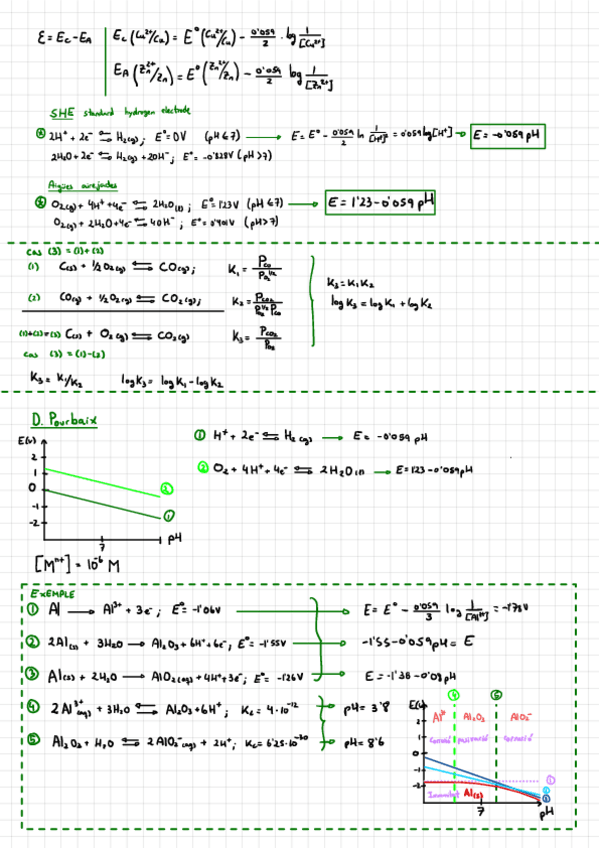 ε = Ec - EA
Ec (Cu²⁺/Cu) = E° (Cu²⁺/Cu) - 0'059/2 · log 1/[Cu²⁺]
EA (Zn²⁺/Zn) = E° (Zn²⁺/Zn) - 0'059/2 log 1/[Zn²⁺]
SHE standard hydrogen electrode
2H⁺ + 2e⁻ ⇆ H₂(g) ; E° = 0V (pH<7) → E = E° - 0'059/2 ln 1/[H⁺]² = 0'059 log[H⁺] → E = -0'059 pH
2H₂O + 2e⁻ ⇆ H₂(g) + 2OH⁻ ; E° = -0'828V (pH>7)
Aigües airejades
O₂(g) + 4H⁺ + 4e⁻ ⇆ 2H₂O(l) ; E° = 1'23V (pH<7) → E = 1'23 - 0'059 pH
O₂(g) + 2H₂O + 4e⁻ ⇆ 4OH⁻ ; E° = 0'401V (pH>7)
cas (3) = (1)+(2)
(1) C(s) + 1/2 O₂(g) ⇆ CO(g) ; K₁ = Pco/Po₂^1/2
K₃ = K₁K₂
(2) CO(g) + 1/2 O₂(g) ⇆ CO₂(g) ; K₂ = Pco₂/Po₂^1/2 Pco
log K₃ = log K₁ + log K₂
(1)+(2)=(3) C(s) + O₂(g) ⇆ CO₂(g) K₃ = Pco₂/Po₂
cas (3) = (1)-(2)
K₃ = K₁/K₂ log K₃ = log K₁ - log K₂
D. Pourbaix
① H⁺ + 2e⁻ ⇆ H₂(g) → E = -0'059 pH
② O₂ + 4H⁺ + 4e⁻ ⇆ 2H₂O(l) → E = 1'23 - 0'059pH
E(v)
2
1
0
-1
-2
②
①
7
pH
[Mⁿ⁺] = 10⁻⁶ M
EXEMPLE
① Al → Al³⁺ + 3e⁻ ; E° = -1'06V → E = E° - 0'059/3 log 1/[Al³⁺] = -1'78V
② 2Al(s) + 3H₂O → Al₂O₃ + 6H⁺ + 6e⁻, E° = -1'55V → -1'55 - 0'059pH = E
③ Al(s) + 2H₂O → AlO₂(g) + 4H⁺ + 3e⁻ ; E° = -1'26V → E = -1'38 - 0'08pH
④ 2Al³⁺(aq) + 3H₂O ⇆ Al₂O₃ + 6H⁺ ; Kc = 4·10⁻¹² → pH = 3'8
⑤ Al₂O₃ + H₂O ⇆ 2AlO₂⁻(aq) + 2H⁺ ; Kc = 6'25·10⁻³⁰ → pH = 8'6
E(v)
④
⑤
2
Al³⁺
Al₂O₃
AlO₂⁻
1
corrosió
passivació
corrosió
0
-1
-2
①
Immunitat
Al(s)
7
pH